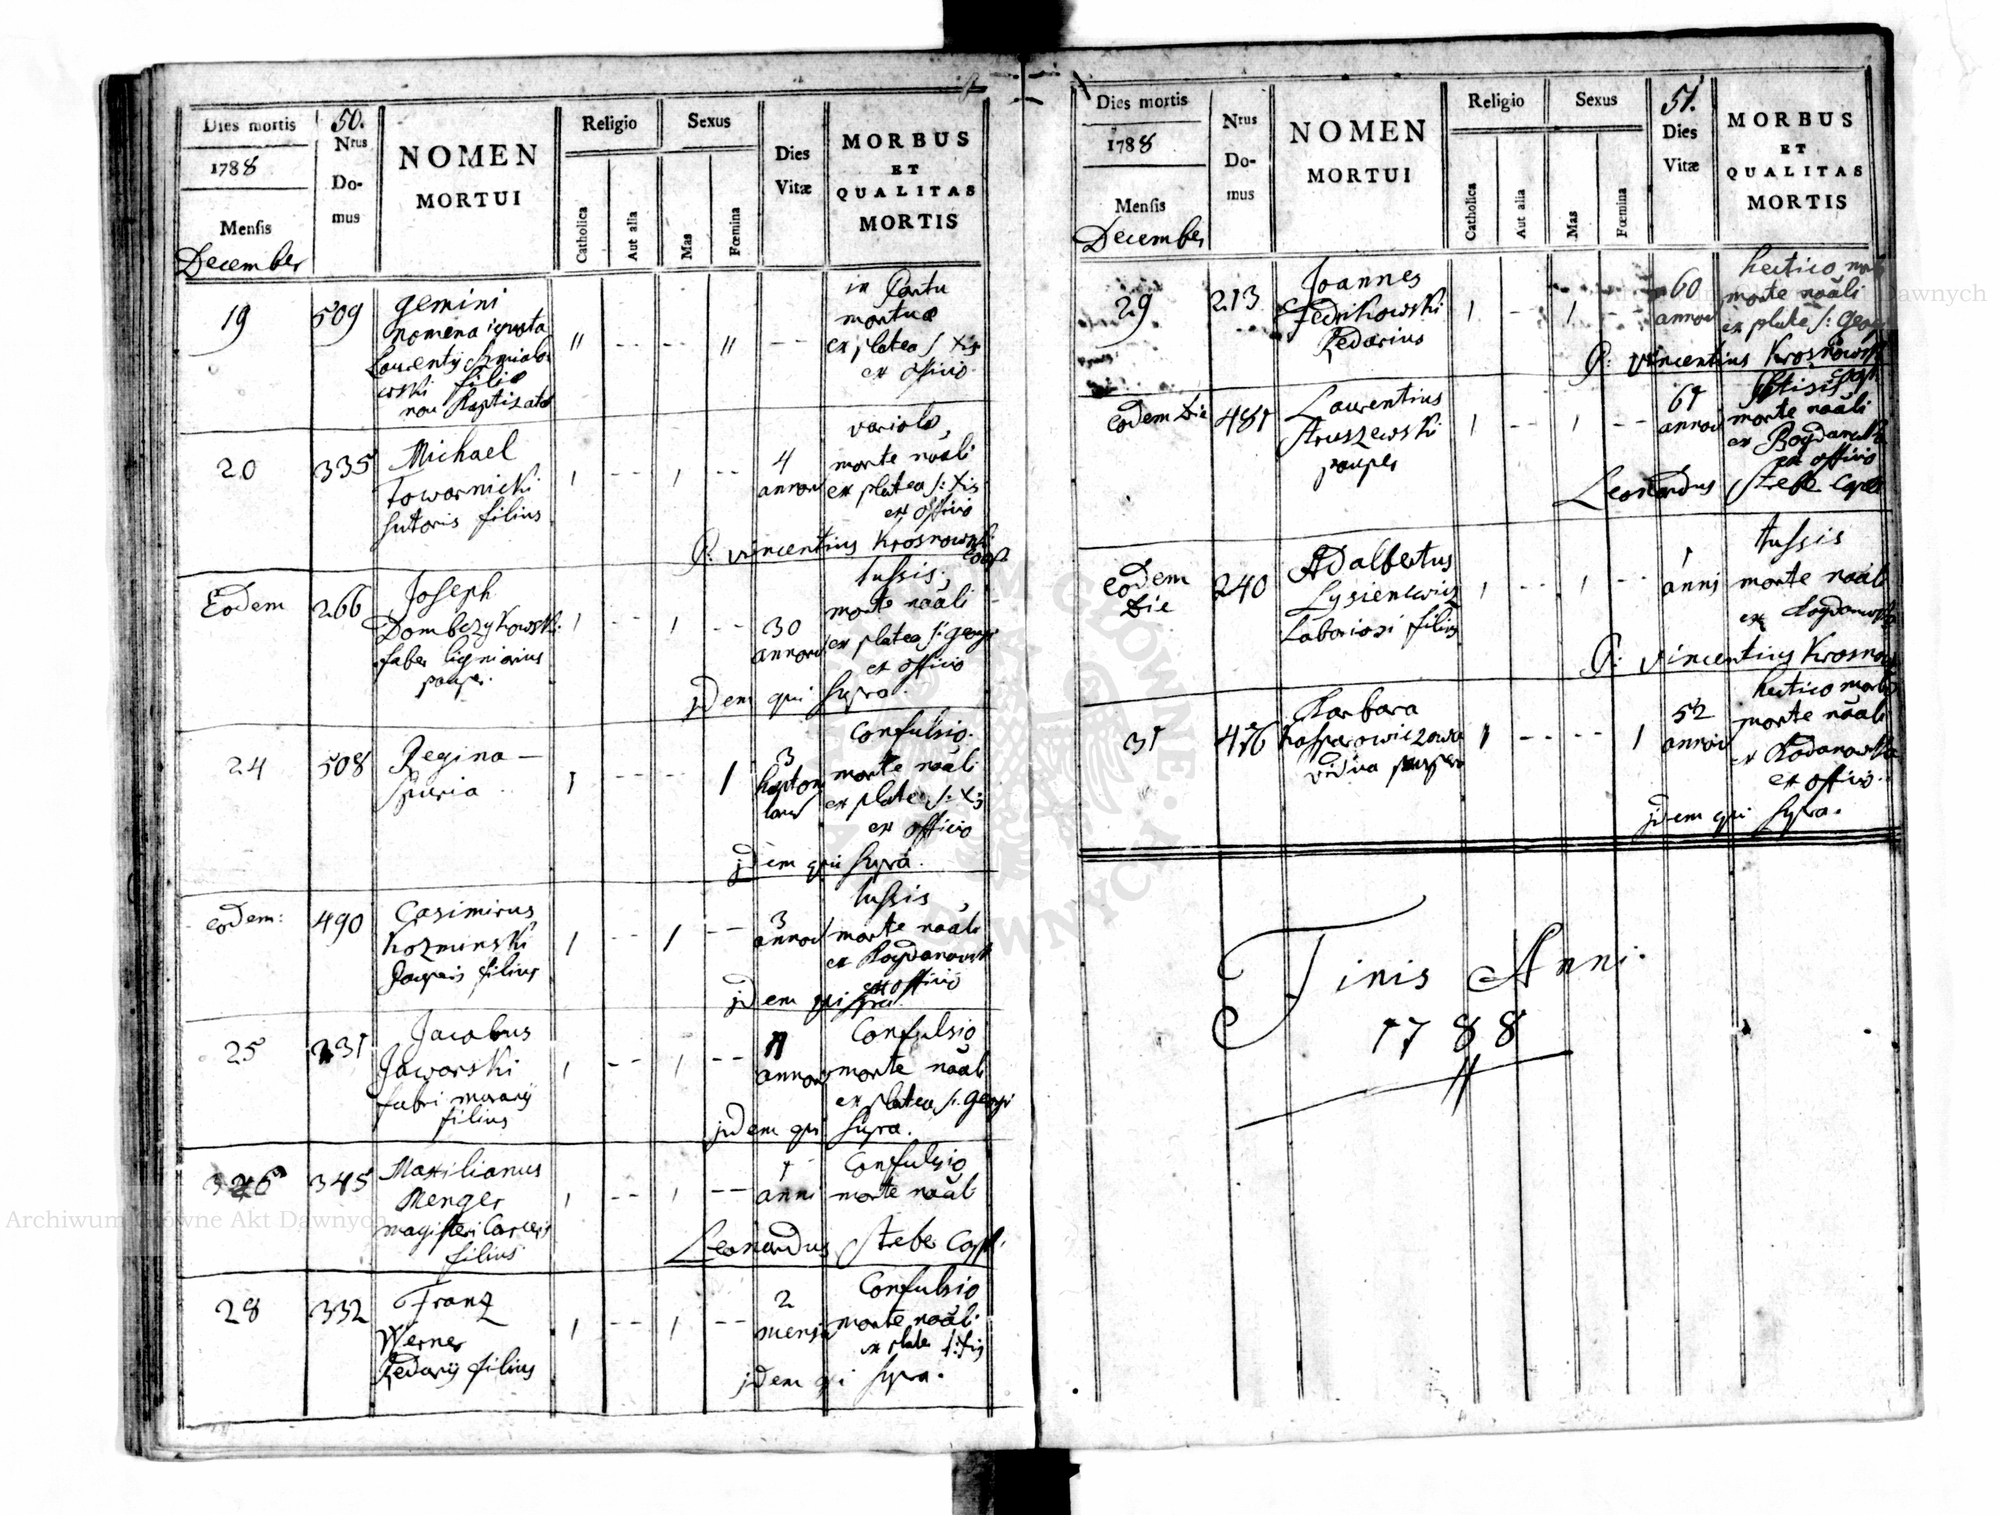 Dies mortis
1788
Mensis
December
50.
Nrus
Do-
mus
NOMEN
MORTUI
Religio
Catholica
Aut alia
Sexus
Mas
Fœmina
Dies
Vitæ
MORBUS
ET
QUALITAS
MORTIS
19 509 gemini
nomena ignota
Laurentij
filiæ
non Baptizatæ
" - - - - " - -
in Partu
mortuæ
ex platea S: Xis
ex officio
20 335 Michael
Towarnicki
Sutoris filius
1 - - 1 - - 4
annorum
variola
morte nãali
ex platea S: Xis
ex officio
P: Vincentius Krosnowski
Coop
Eodem 266 Joseph
Dombczykowski
faber ligniarius
pauper.
1 - - 1 - - 30
annorum
tussis
morte nãali
ex platea S: Georgi
ex officio
jdem qui supra.
24 508 Regina —
Spuria
1 - - - - 1 3
Confulsio.
morte nãali
ex platea S: Xis
ex officio
jdem qui supra.
eodem: 490 Casimirus
Kozminski
Pauperis filius
1 - - 1 - - 3
annorum
tussis
morte nãali
ex Bogdanowk
ex officio
jdem qui supra.
25 231 Jacobus
Jaworski
fabri murarij
filius
1 - - 1 - -
annorum
Confulsio
morte nãali
ex platea S: Georgi
jdem qui supra.
26 345 Maxilianus
Menger
magisteri Carceris
filius
1 - - 1 - - 1
anni
Confulsio
morte nãali
Leonardus Strebe Capl.
28 332 Franz
Werner
Pedarij filius
1 - - 1 - - 2
mensium
Confulsio
morte nãali
ex platea S: Xis
jdem qui supra.
Dies mortis
1788
Mensis
December
Nrus
Do-
mus
NOMEN
MORTUI
Religio
Catholica
Aut alia
Sexus
Mas
Fœmina
51.
Dies
Vitæ
MORBUS
ET
QUALITAS
MORTIS
29 213 Joannes
Fedrikowski
Pedarius
1 - - 1 - - 60
annorum
hectico
morte nãali
ex platea S: Georgi
P: Vincentius Krosnowski
Coop
eodem Die 481 Laurentius
Struszewski
pauper
1 - - 1 - - 61
annorum
phtisis
morte nãali
ex Bogdanowka
ex officio
Leonardus Strebe Capel
eodem
Die 240 Adalbertus
Lysieniewicz
Laboriosi filius
1 - - 1 - - 1
anni
tussis
morte nãali
ex Bogdanowka
P: Vincentius Krosnow
31 476 Barbara
Kasparowiczowa
vidua pauper
1 - - - - 1 52
annorum
hectico morbo
morte nãali
ex Bodanowka
ex officio.
jdem qui supra.
Finis Anni.
1788
Archiwum Główne Akt Dawnych
Archiwum Główne Akt Dawnych